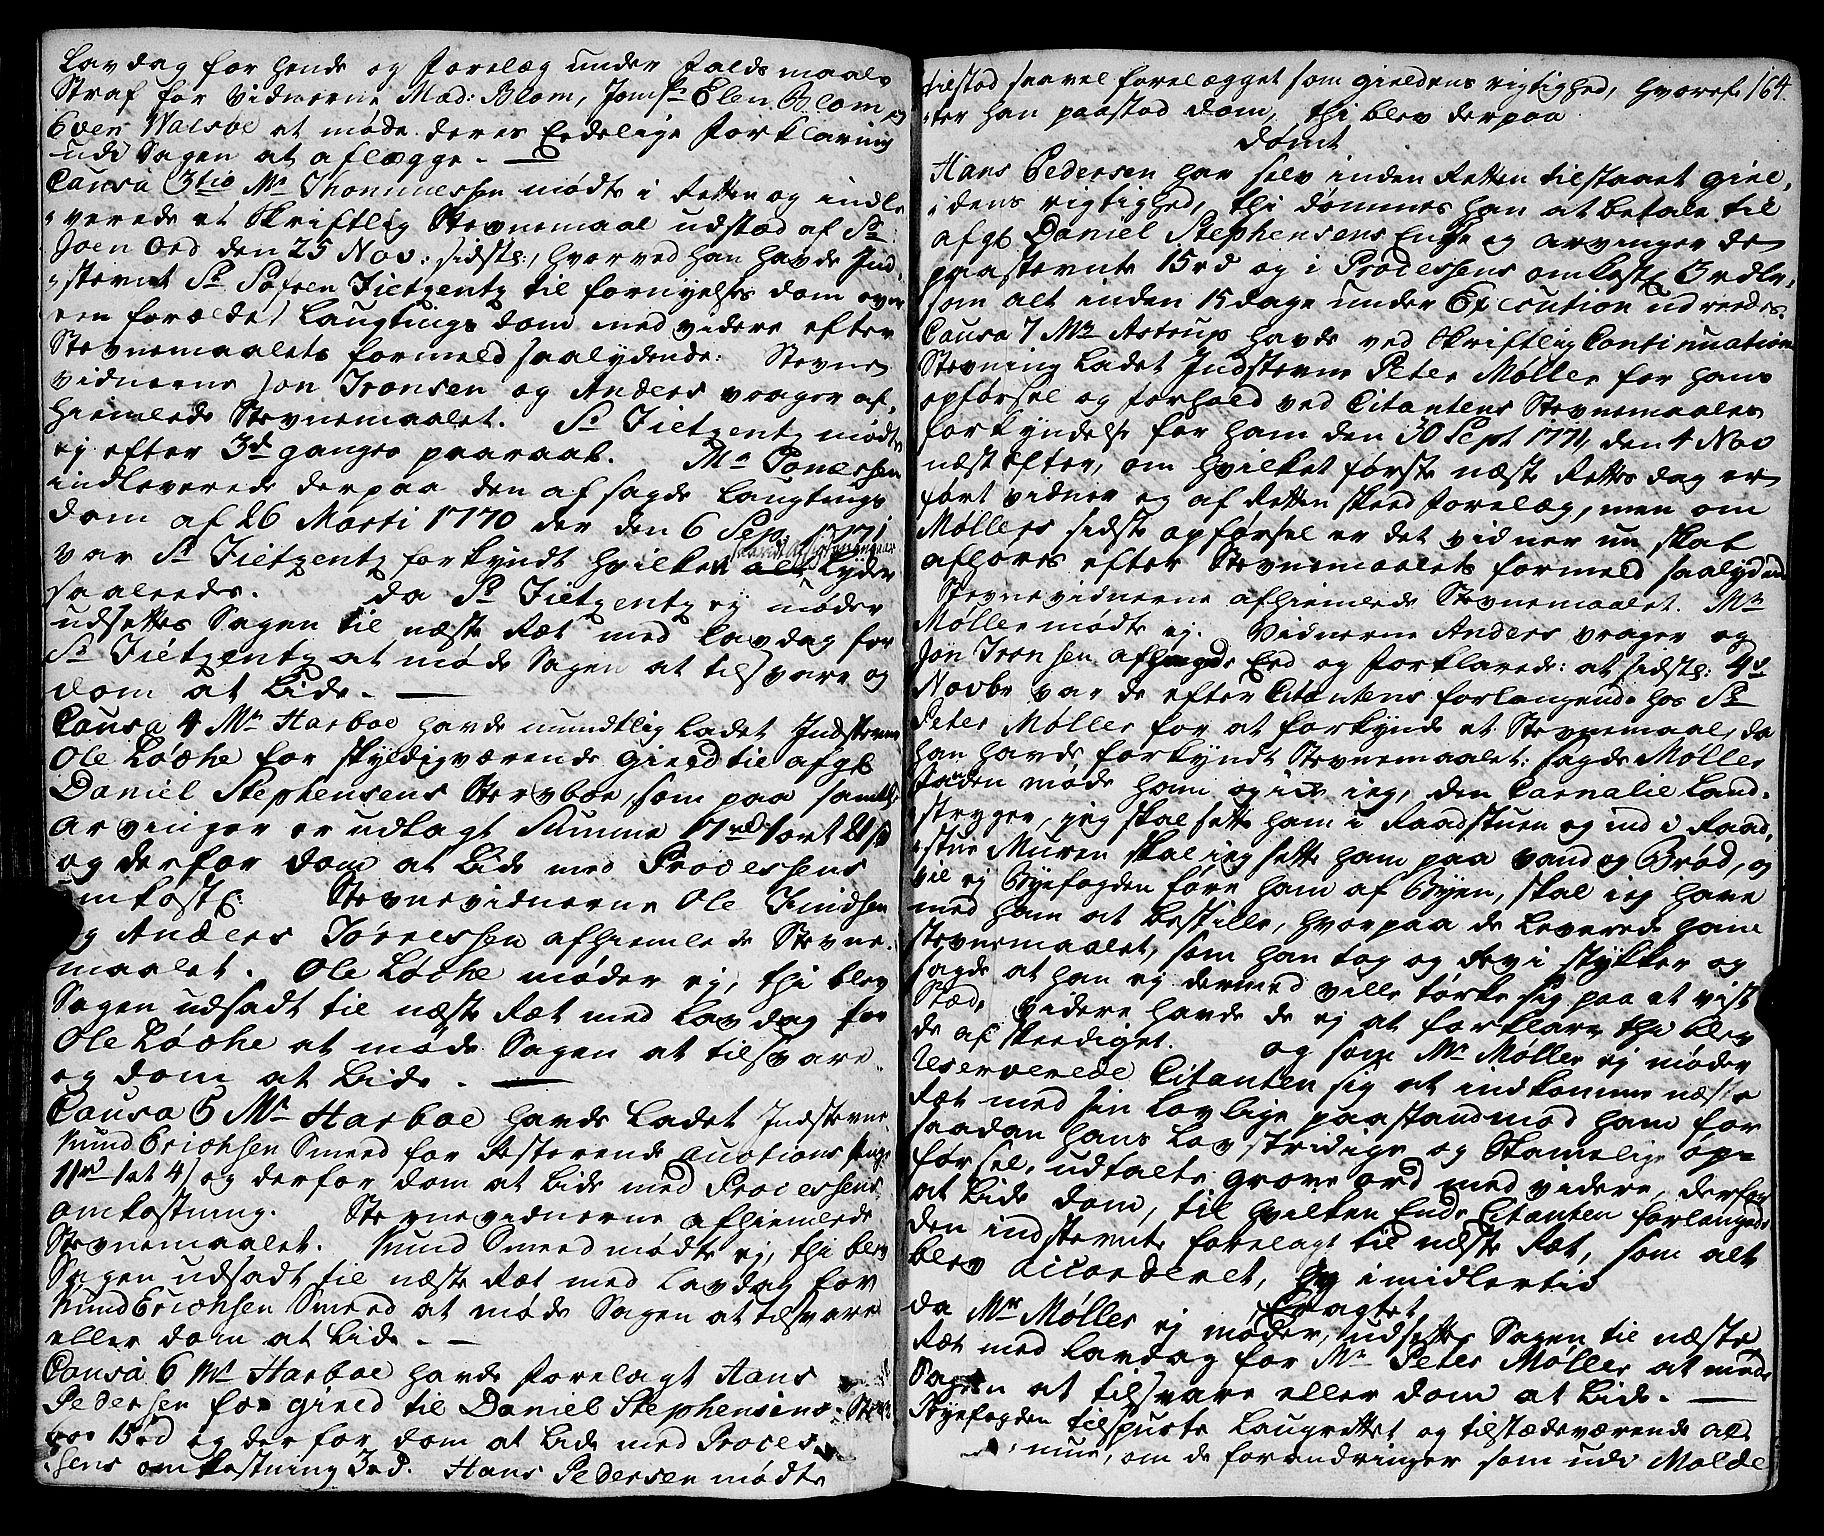 Lavdag for hende og Forelæg under Falds maals
Straf for Vidnerne Mad: Blom, Jomf. Elen Blom og
Even Walsøe at møde deres Eedelige Forklaring
udi Sagen at aflægge. —
Causa 3tio Mr Thommessen mødte i Retten og indle-
verede et Skriftlig Stevnemaal udstæd af Sr
Joen Ord den 25 Nov: sidstl:, hvorved han havde Ind-
stevnt Sr Søfren Fietzentz til fornyelses dom over
een forældet Laugtings dom med videre efter
Stevnemaalets formeld saalydende: Stevne
vidnerne Jon Ironsen og Anders vrager af-
hiemlede Stevnemaalet. Sr Fietzentz mødte
ej efter 3de ganges paaraab. Mr Tomessen
indleverede derpaa den afsagde Laugtings
dom af 26 Marti 1770 der den 6 Sep. 1771
var Sr Fietzentz forkyndt hvilken lyder
saaleeds. da Sr Fietzentz ej møder
udsettes Sagen til næste Ræt med Lavdag for
Sr Fietzentz at møde Sagen at tilsvare og
dom at Lide. —
Causa 4 Mr Harboe havde mundtlig Ladet Indstevne
Ole Løche for skyldigværende Gield til afgl
Daniel Stephensens Sterboe, som paa samtl.
arvinger er udlagt Summa 17rd 1ort 21s
og derfor dom at Lide med Processens
omkostn: Stevnevidnerne Ole Knudsen
og Anders Tørressen afhiemlede Stevne-
maalet. Ole Løche møder ej, thi blev
Sagen udsadt til næste Ræt med Lavdag for
Ole Løche at møde Sagen at tilsvare
og dom at Lide. —
Causa 5 Mr Harboe havde Ladet Indstevne
Knud Erichsen Smeed for Resterende auctions Penge
11rd 1ort 4s og derfor dom at Lide med Processens
omkostning. Stevnevidnerne afhiemlede
Stevnemaalet. Knud Smeed mødte ej, thi blev
Sagen udsadt til næste Ræt med Lavdag for
Knud Erichsen Smeed at møde Sagen at tilsvare
eller dom at Lide. —
Causa 6 Mr Harboe havde Forelagt Hans
Pedersen for gield til Daniel Stephensens Ster-
boe 15rd og derfor dom at Lide med Proces-
sens omkostning 3rd. Hans Pedersen mødte
164.
tilstod saavel forelægget som gieldens rigtighed, hvoref-
ter han paastod dom, thi blev derpaa
dømt
Hans Pedersen har selv inden Retten tilstaaet giel-
dens rigtighed, thi dømmes han at betale til
afgl Daniel Stephensens Enke og arvinger de
paastevnte 15rd og i Processens omkostn 3rdlr,
som alt inden 15 dage under Execution udreedes.
Causa 7 Mr Astrup havde ved Skriftlig Continuation
Stevning Ladet Indstevne Peter Møller for hans
opførsel og forhold ved Citantens Stevnemaales
forkyndelse for ham den 30 Sept 1771, den 4 Nov
næst efter, om hvilket første næste Rettes dag er
ført vidner og af Retten skeed forelæg, men om
Møllers sidste opførsel er det vidner nu skal
afhøres efter Stevnemaalets formeld saalydende
Stevnevidnerne afhiemlede Stevnemaalet. Mr
Møller mødte ej. Vidnerne Anders vrager og
Jon Ironsen aflagde Eed og forklarede: at sidstl: 4de
Novbr var de efter Citantens forlangende hos Sr
Peter Møller for at forkynde et Stevnemaal, da
han havde forkyndt Stevnemaalet: sagde Møller
Fanden møde ham og icke ieg, den Carnalie Land-
stryger, jeg skal sette ham i Raadstuen og ind i Raad-
stue Muren skal ieg sette ham paa vand og Brød, og
vil ej Byefogden føre ham af Byen, skal ieg have
med ham at bestille, hvorpaa de Leverede ham
Stevnemaalet, som han tog og rev i stykker og
sagde at han ej dermed ville tørke sig paa et vist
Stæd, videre havde de ej at forklare thi blev
de afskeediget. og som Mr Møller ej møder
reserverede Citanten sig at indkomme næste
Ræt med sin Lovlige paastand mod ham for
saadan hans Lovstridige og Skamelige op-
førsel, udtalte grove ord med videre, derfor
at Lide dom, til hvilken Ende Citanten forlangede
den indstevnte forelagt til næste Ræt, som alt
blev accorderet, og imidlertid
Eragtet
da Mr Møller ej møder, udsettes Sagen til næste
Ræt med Lavdag for Mr Peter Møller at møde
Sagen at tilsvare eller dom at Lide. —
Byefogden tilspurte Laugrettet og tilstædeværende al-
mue, om de forandringer som udi Molde